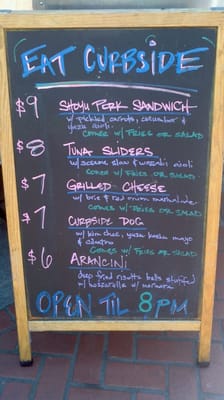 EAT CURBSIDE
$9 SHOYU PORK SANDWICH
w/ pickled carrots, cucumber &
yuzu aioli
COMES W/ FRIES OR SALAD
$8 TUNA SLIDERS
w/ sesame slaw & wasabi aioli
COMES W/ FRIES OR SALAD
$7 GRILLED CHEESE
w/ brie & red onion marmalade
COMES W/ FRIES OR SALAD
$7 CURBSIDE DOG
w/ kim chee, yuzu kosho mayo
& cilantro
COMES W/ FRIES OR SALAD
$6 ARANCINI
deep fried risotto balls stuffed
w/ mozzarella w/ marinara
OPEN TIL 8PM